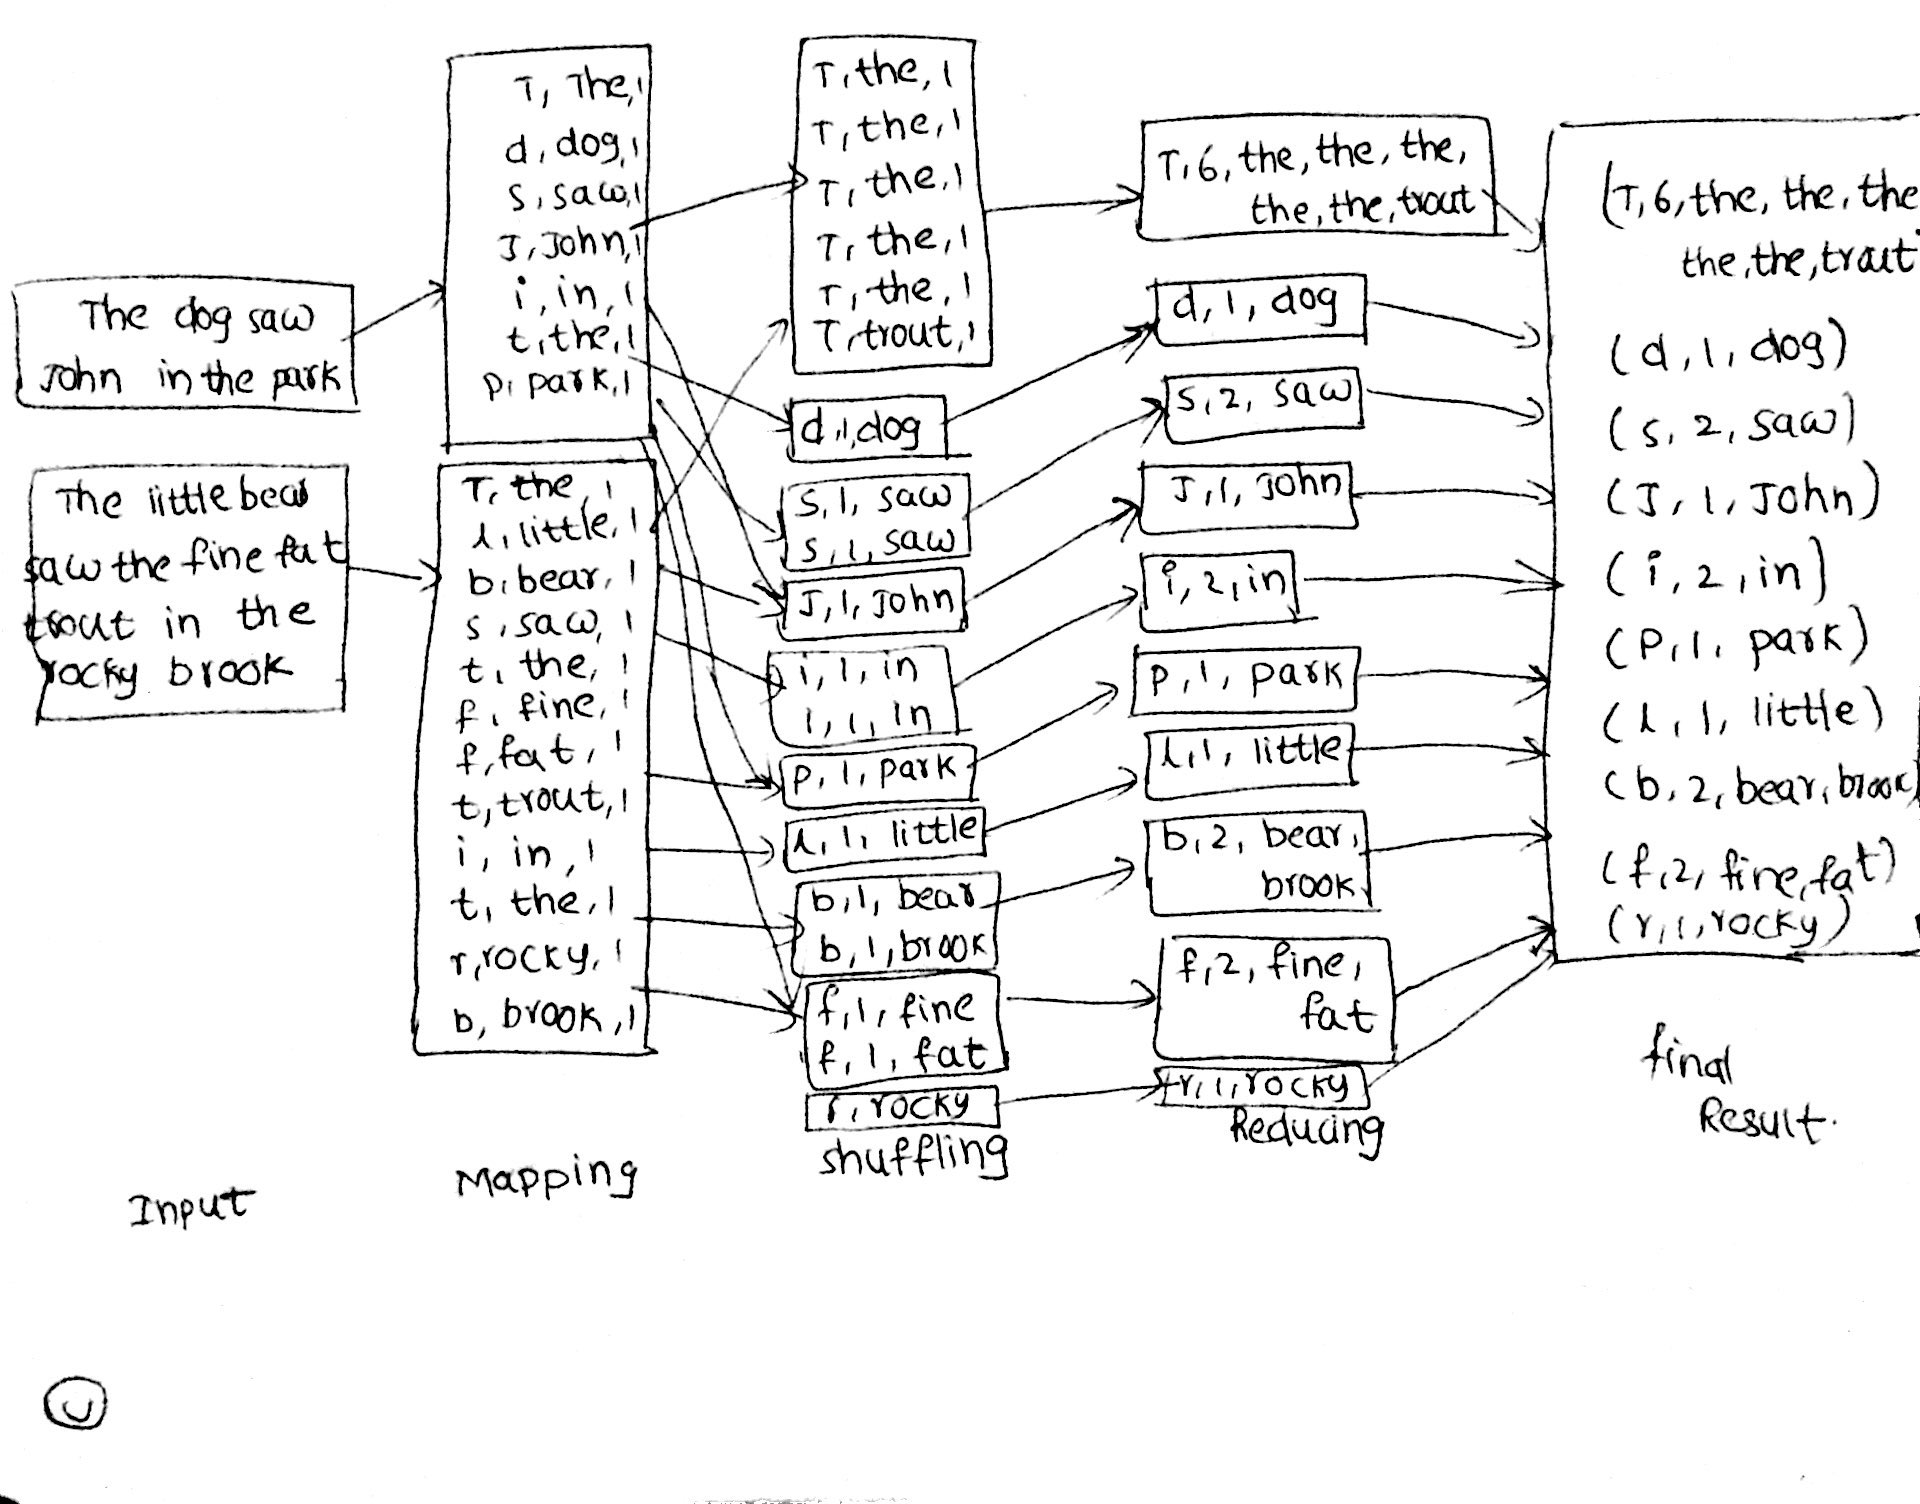 The dog saw
John in the park
The little bear
saw the fine fat
trout in the
rocky brook
Input
T, The, 1
d, dog, 1
s, saw, 1
J, John, 1
i, in, 1
t, the, 1
p, park, 1
T, the, 1
l, little, 1
b, bear, 1
s, saw, 1
t, the, 1
f, fine, 1
f, fat, 1
t, trout, 1
i, in, 1
t, the, 1
r, rocky, 1
b, brook, 1
Mapping
T, the, 1
T, the, 1
T, the, 1
T, the, 1
T, the, 1
T, trout, 1
d, 1, dog
s, 1, saw
s, 1, saw
J, 1, John
i, 1, in
i, 1, in
p, 1, park
l, 1, little
b, 1, bear
b, 1, brook
f, 1, fine
f, 1, fat
r, rocky
shuffling
T, 6, the, the, the,
the, the, trout
d, 1, dog
s, 2, saw
J, 1, John
i, 2, in
p, 1, park
l, 1, little
b, 2, bear,
brook
f, 2, fine,
fat
r, 1, rocky
Reducing
(T, 6, the, the, the
the, the, trout
(d, 1, dog)
(s, 2, saw)
(J, 1, John)
(i, 2, in)
(P, 1, park)
(l, 1, little)
(b, 2, bear, brook)
(f, 2, fine, fat)
(r, 1, rocky)
final
Result.